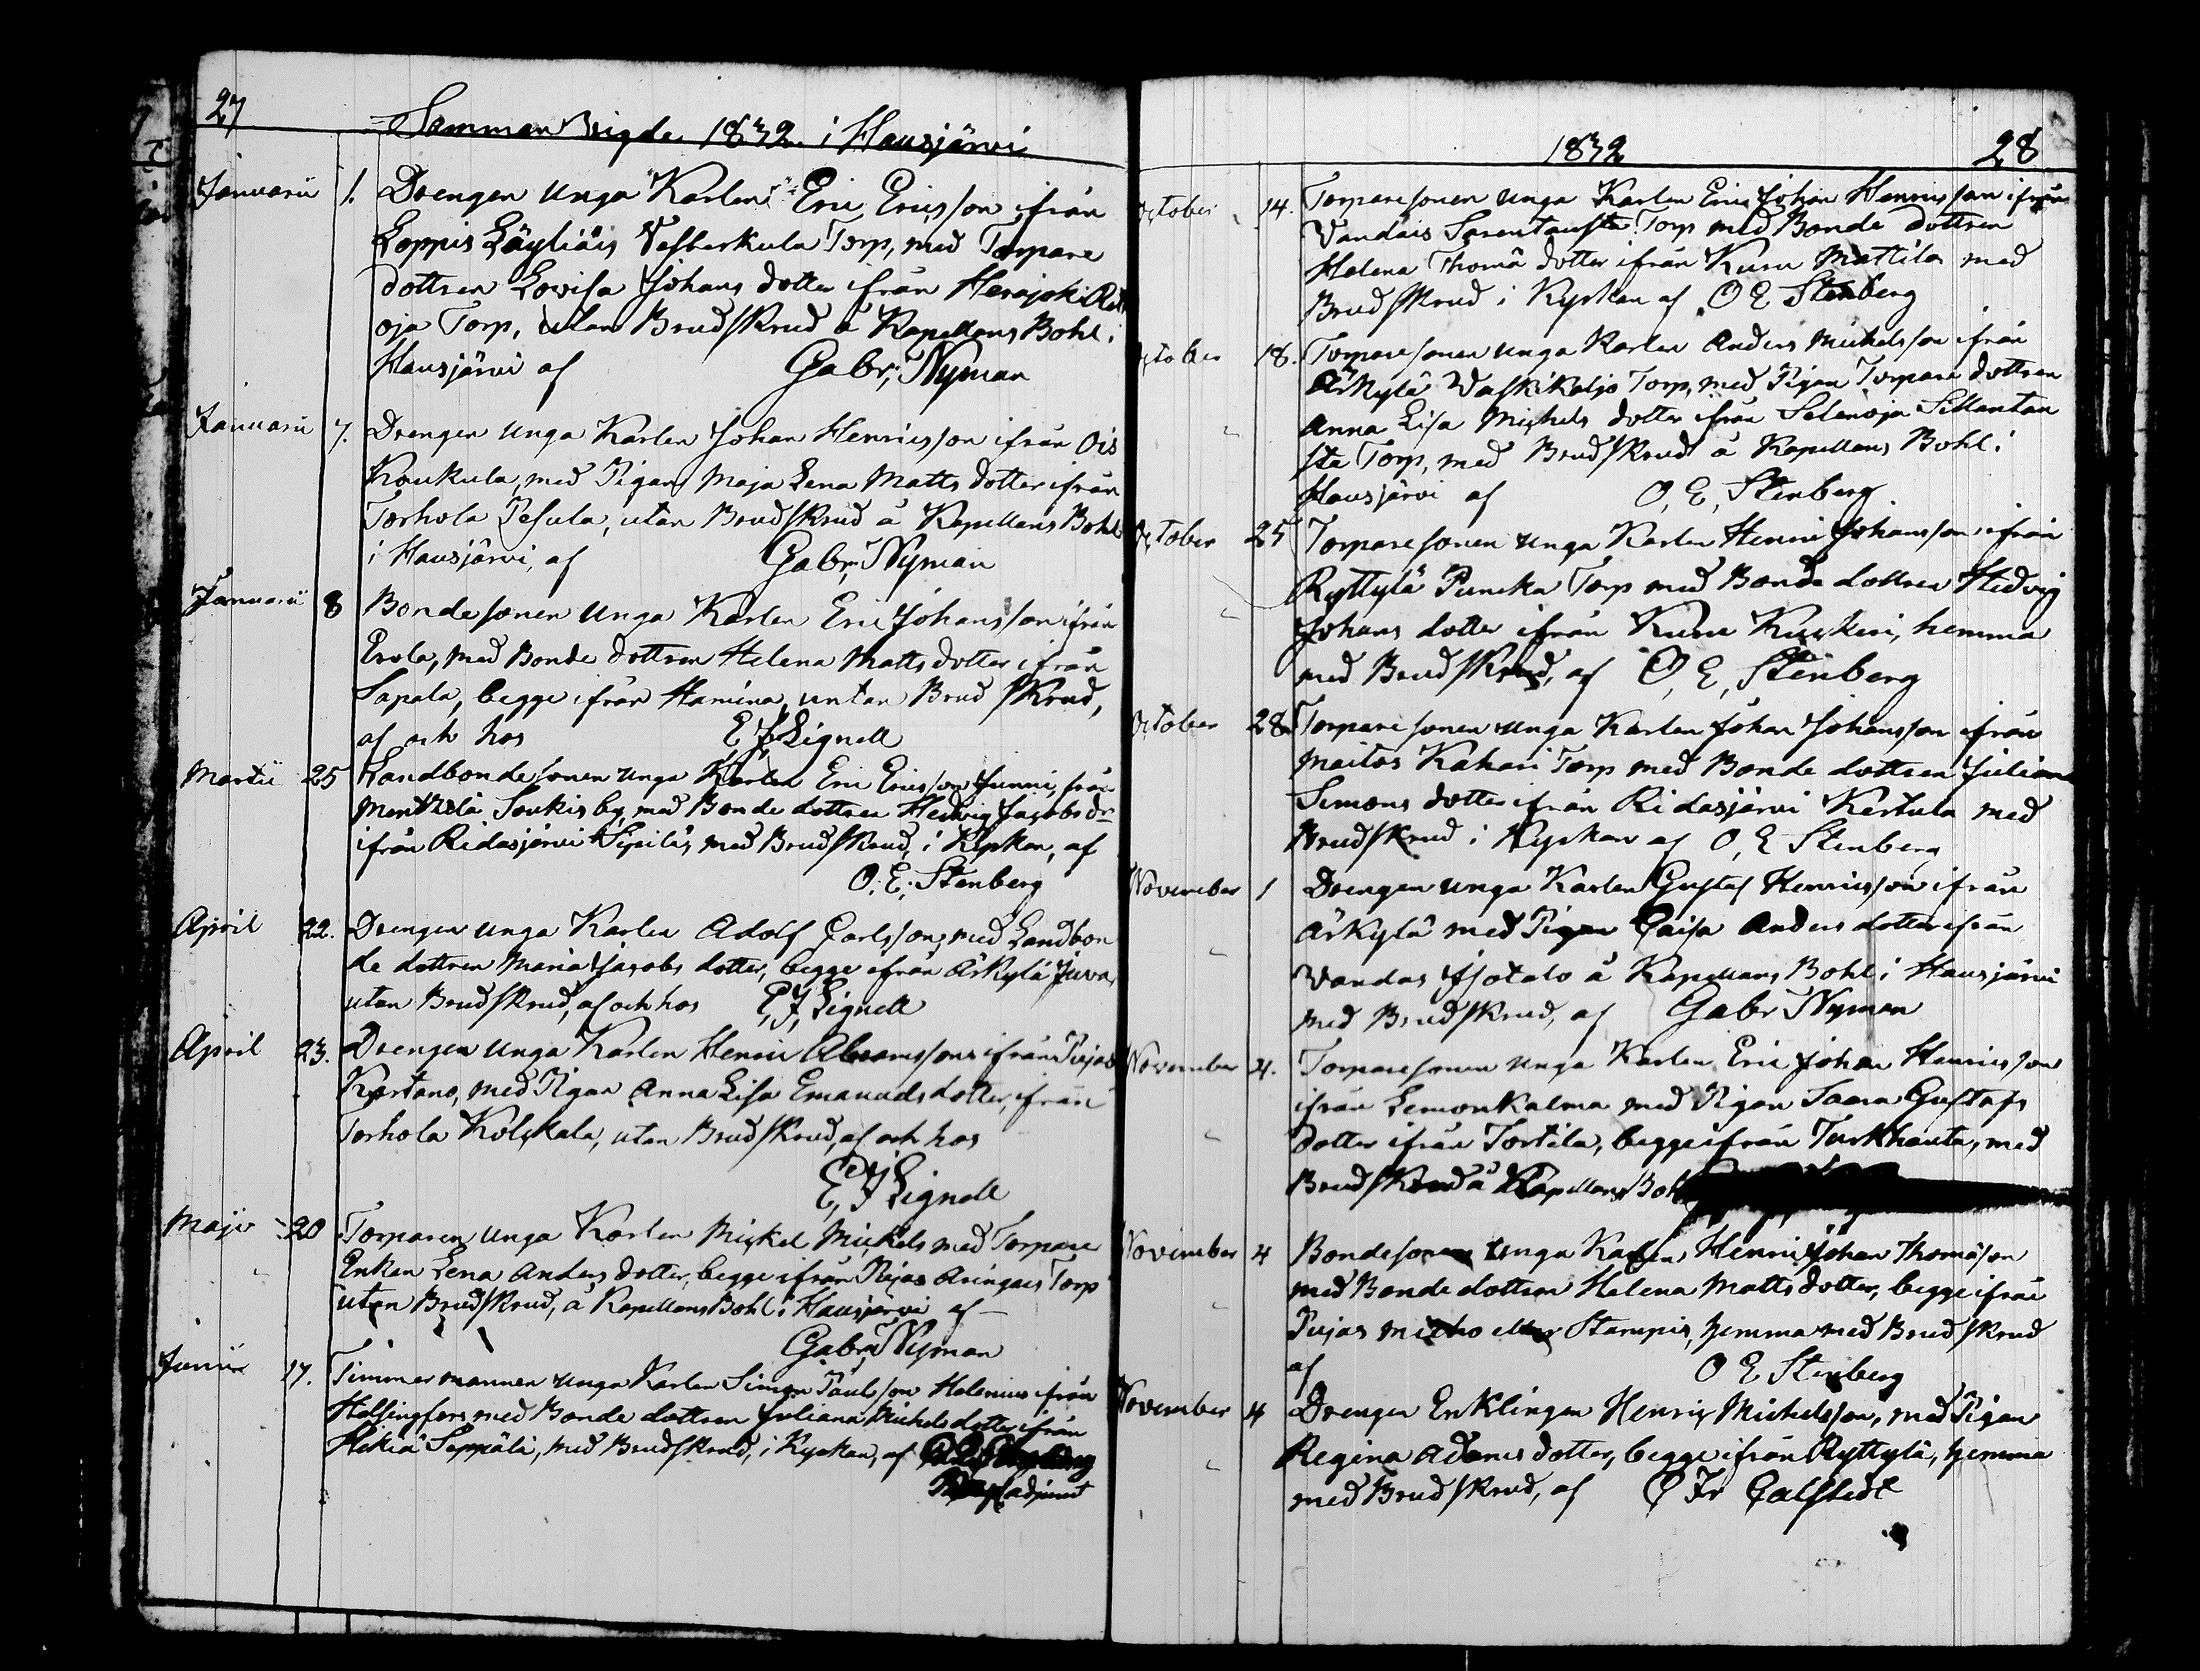 27
Sammanvigde 1832 i Hausjärvi
Januarii 1. Drengen unga Karlen Eric Ericsson ifrån
Loppis Läyliäis Vesterkula Torp, med Torpare
dottren Lovisa Johans dotter ifrån Herajoki
oja Torp, utan Brudskrud å Kapellans Bohl i
Hausjärvi af Gabr; Nyman
Januarii 7. Drengen unga Karlen Johan Henricsson ifrån Ois
Koukula, med Pigan Maja Lena Matts dotter ifrån
Torhola Pesula, utan Brudskrud å Kapellans Bohl
i Hausjärvi, af Gabr; Nyman
Januarii 8 Bondesonen unga Karlen Eric Johansson ifrån
Erola, med Bonde dottren Helena Matts dotter ifrån
Sapala, begge ifrån Hamina, utan Brud skrud,
af och hos E J Lignell
Martii 25 Landbondesonen unga Karlen Eric Ericsson Junni, från
Mentzelä Soukis by, med Bonde dottren Hedvig Jacobs dr
ifrån Ridasjärvi med Brudskrud, i Kyrkan, af
O; E; Stenberg
April 22. Drengen unga Karlen Adolf Carlsson, med Landbon
de dottren Maria Jacobs dotter, begge ifrån Ärkylä Juva,
utan Brudskrud, af och hos E, J, Lignell
April 23. Drengen unga Karlen Henric Abramsson ifrån Pujas
Kartano, med Pigan Anna Lisa Emanuels dotter, ifrån
Torhola Kolskala, utan Brudskrud, af och hos
E, J Lignell
Maji 20 Torparen unga Karlen Mickel Mickels med Torpare
Enkan Lena Anders dotter, begge ifrån Pujas Aringais Torp
utan Brudskrud, å Kapellans Bohl i Hausjärvi af
Gabr; Nyman
Junii 17. Timmermannen unga Karlen Simon Paulsson Helenius ifrån
Helsingfors med Bonde dottren Juliana Michels dotter ifrån
Hikiä Seppälä, med Brudskrud, i Kyrkan, af
adjunct
1832 28
October 14. Torparesonen unga Karlen Eric Johan Henricsson ifrån
Vandais Sarentausta Torp med Bonde dottren
Helena Thomæ dotter ifrån Kuru Mattila med
Brudskrud i Kyrkan af O E Stenberg
October 18. Torparesonen unga Karlen Anders Michelsson ifrån
Ärkylä Vaskikaljo Torp, med Pigan Torpare dottren
Anna Lisa Michels dotter ifrån Selenoja Sillantau
sta Torp, med Brudskrud å Kapellans Bohl i
Hausjärvi af O, E, Stenberg.
October 25 Torparesonen unga Karlen Henric Johansson ifrån
Ryttylä Puncka Torp med Bonde dottren Hedvig
Johans dotter ifrån Kuru Kuckeri, hemma
med Brudskrud, af O, E, Stenberg
October 28 Torparesonen unga Karlen Johan Johansson ifrån
Maitos Kahari Torp med Bonde dottren Juliana
Simons dotter ifrån Ridasjärvi Kertula med
Brudskrud i Kyrkan af O, E Stenberg
November 1 Drengen unga Karlen Gustaf Henricsson ifrån
Ärkylä med Pigan Caisa Anders dotter ifrån
Vandas Isotalo å Kapellans Bohl i Hausjärvi
med Brudskrud, af Gabr Nyman
November 4. Torparesonen unga Karlen Eric Johan Henricsson
ifrån Lemonkalma med Pigan Saara Gustafs
dotter ifrån Tortila, begge ifrån Turkhauta, med
Brudskrud å Kapellans Boh
November 4 Bondesonen unga Karlen, Henric Johan Thomæson
med Bonde dottren Helena Matts dotter, begge ifrån
Pujas Mitho eller Stampis, hemma med Brudskrud
af O E Stenberg
November 4 Drengen Enklingen Henric Michelsson, med Pigan
Regina Adams dotter, begge ifrån Ryttylä, hemma
med Brudskrud, af C Fr Calstedt